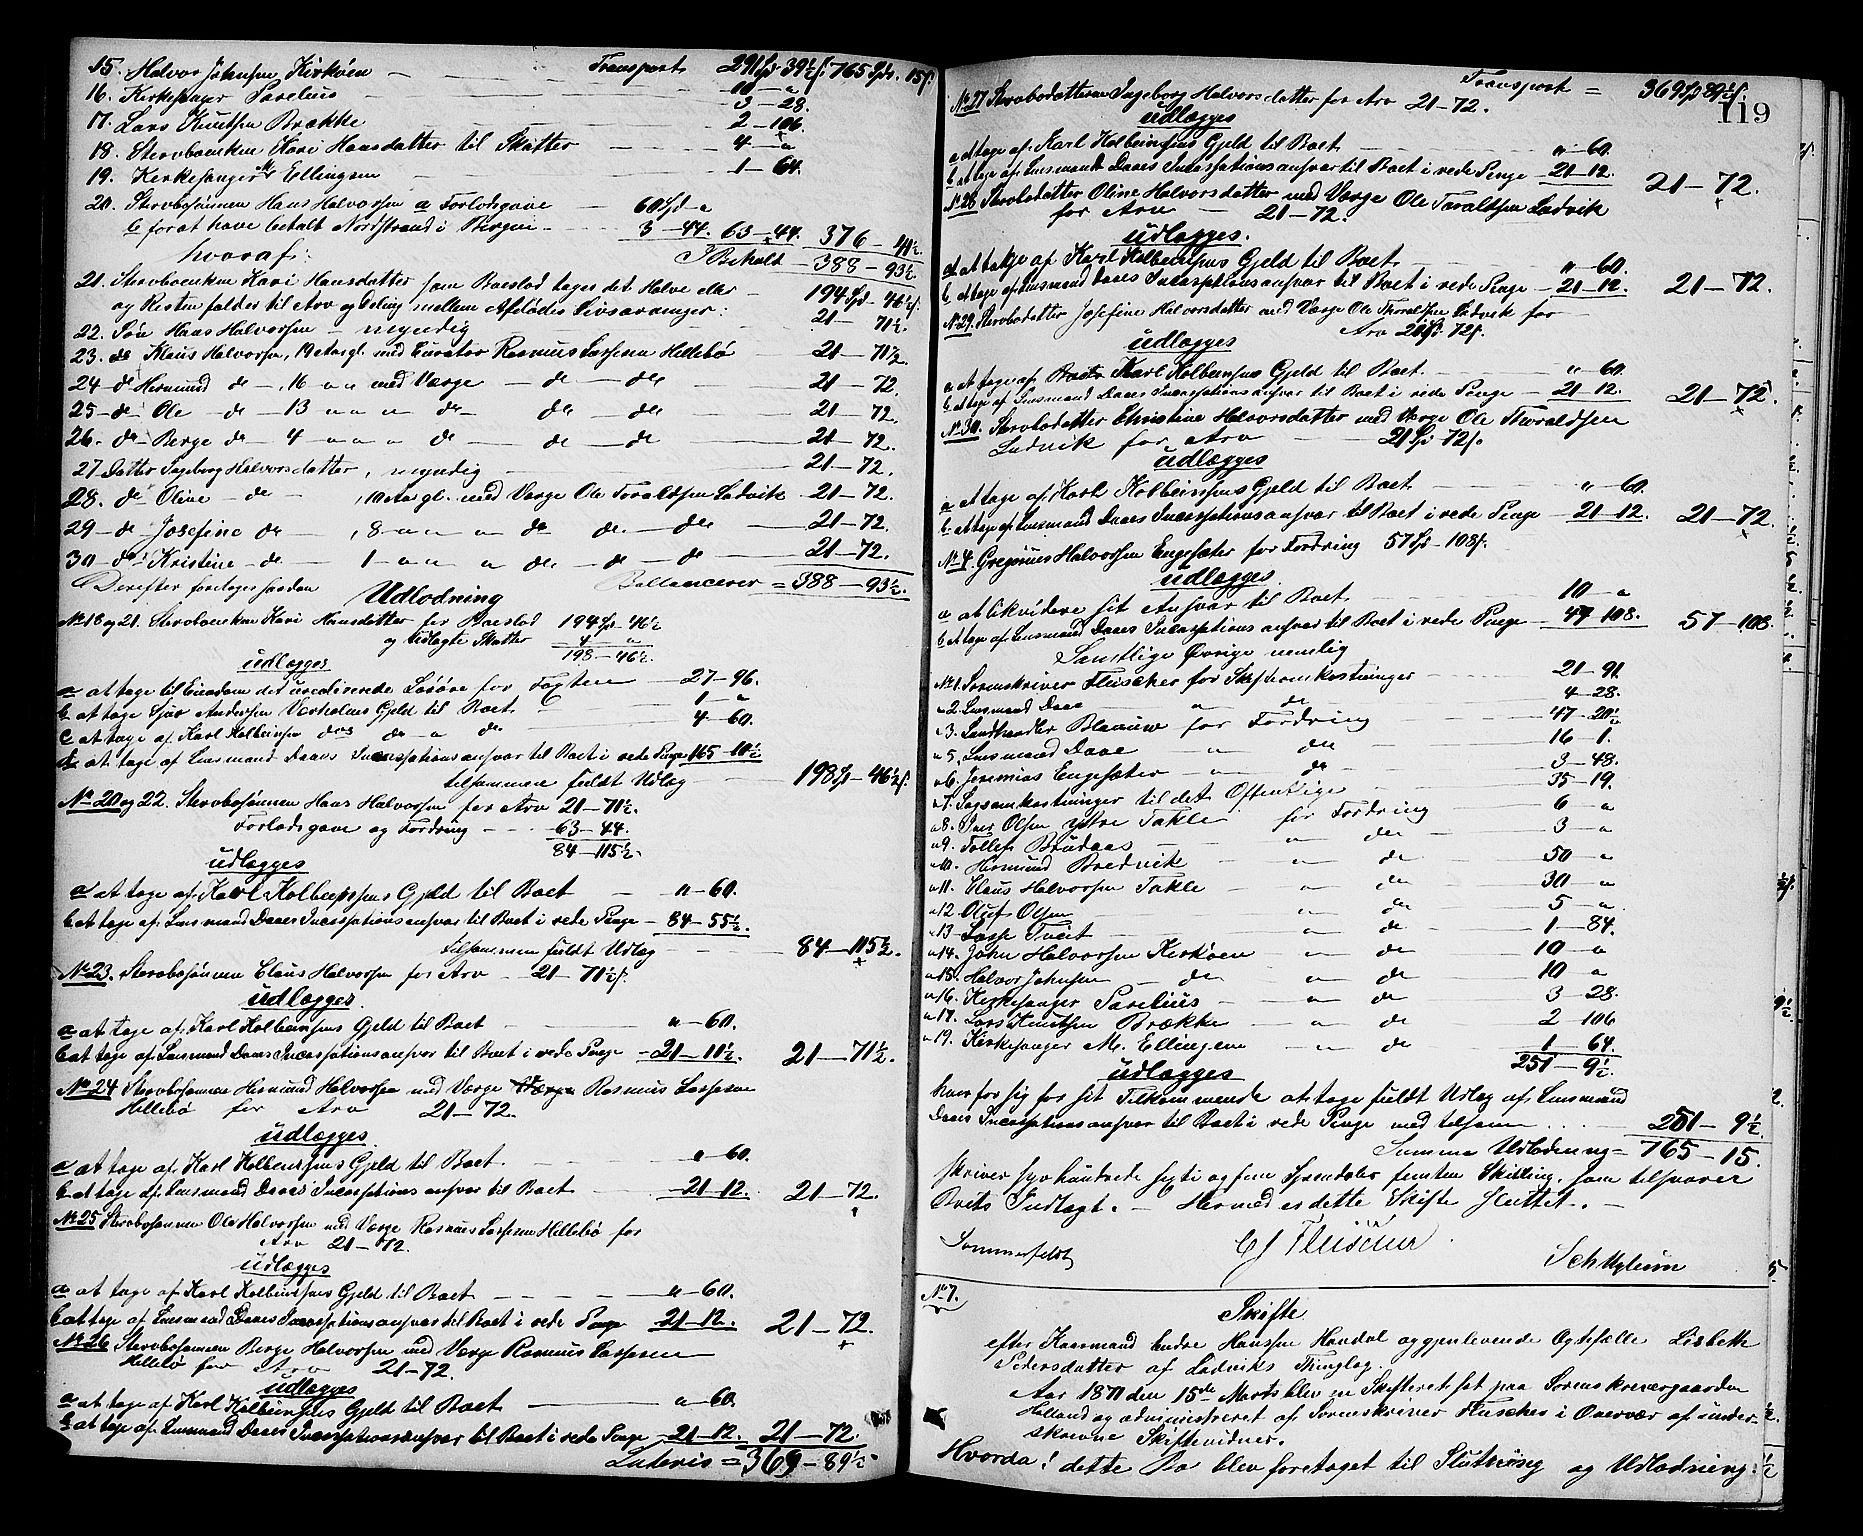 Transport 291 Sp 39½ s: 765 Spd. 15 s.
15. Halvor Johnsen Kirkøen — 10 — "
16. Kirkesanger Parelius — 3 — 28.
17. Lars Knutsen Brække — 2 — 106.
18. Stervboenken Kari Hansdatter til Skatter — 4 — "
19. Kirkesanger M. Ellingsen — 1 — 64.
20. Stervbosønnen Hans Halvorsen a Forlodsgave — 60 Spd — "
b for at have betalt Nordstrand i Bergen — 3 — 44. 63 — 44. 376 — 41½
I Behold — 388 — 93½
hvoraf:
21. Stervboenken Kari Hansdatter som Boeslod tages det Halve eller — 194 Spd — 46½ s.
og Resten falder til Arv og Deling mellem Afdødes Livsarvinger:
22. Søn Hans Halvorsen — myndig — 21 — 71½
23. do Klaus Halvorsen, 19 Aar gl. med Curator Rasmus Lassesen Hillebø — 21 — 71½
24 — do Hermund do —, 16 " " med Værge — do — do — 21 — 72.
25 — do Ole — do — 13 " " " do — do — do — 21 — 72.
26. — do — Berge do — 4 — " " " do — do — do — 21 — 72.
27 Datter Ingeborg Halvorsdatter, myndig — 21 — 72.
28. do Oline — do —, 10 Aar gl. med Værge Ole Toraldsen Ladvik — 21 — 72.
29 — do Josefine do —, 8 — " " " do — do — do — 21 — 72.
30 — do Kristine — do — 1 — " " " do — do — do — 21 — 72.
Derefter foretoges saadan Ballancerer = 388 — 93½
Udlodning
No 18 og 21. Stervboenken Kari Hansdatter for Boeslod 194 Spd — 46½
og udlagte Skatter 4 — "
198 — 46½.
udlægges
a at tage til Eiendom det uvederlagte Løsøre for Taxten — 27 — 96.
b at tage Sjur Andersen Værholms Gjeld til Boet — 1 — "
c at tage af Karl Kolbeinsens do — " — do — 4 — 60.
d at tage af Lensmand Daaes Incassationsansvar til Boet i rede Penge 165 — 10½
tilsammen fuldt Udlæg — 198 Spd — 46½ s.
No 20 og 22. Stervbosønnen Hans Halvorsen for Arv 21 — 71½.
Forlodsgave og Fordring — 63 — 44.
84 — 115½.
udlægges
a at tage af Karl Kolbeinsens Gjeld til Boet — " — 60.
b at tage af Lensmand Daaes Incassationsansvar til Boet i rede Penge — 84 — 55½.
tilsammen fuldt Udlæg — 84 — 115½.
No 23. Stervbosønnen Claus Halvorsen for Arv — 21 — 71½ s.
udlægges
a at tage af Karl Kolbeinsens Gjeld til Boet — " — 60.
b at tage af Lensmand Daaes Incassationsansvar til Boet i rede Penge — 21 — 11½. 21 — 71½
No 24 Stervbosønnen Hermund Halvorsen med Værge Rasmus Lassesen
Hillebø for Arv 21 — 72.
udlægges
a at tage af Karl Kolbeinsens Gjeld til Boet — " — 60.
b at tage af Lensmand Daaes Incassations ansvar til Boet — 21 — 12. 21 — 72.
No 25 Stervbosønnen Ole Halvorsen med Værge Rasmus Lassesen Hillebø for
Arv 21 — 72.
udlægges
a at tage af Karl Kolbeinsens Gjeld til Boet — " — 60.
b at tage af Lensmand Daaes Incassationsansvar til Boet i rede Penge 21 — 12. 21 — 72.
No 26 Stervbosønnen Berge Halvorsen med Værge Rasmus Lassesen
Hillebø for Arv 21 — 72.
udlægges
a at tage af Karl Kolbeinsens Gjeld til Boet — " — 60.
b at tage af Lensmand Daaes Incassationsansvar til Boet i rede Penge — 21 — 12. 21 — 72.
Lateris = 369 — 89½
119
Transport = 369 Sp 89½ s.
No 27 Stervbodatteren Ingeborg Halvorsdatter for Arv 21 — 72.
udlægges
a at tage af Karl Kolbeinsens Gjeld til Boet — " — 60.
b at tage af Lensmand Daaes Incassationsansvar til Boet i rede Penge — 21 — 12. 21 — 72.
No 28 Stervbodatter Oline Halvorsdatter med Værge Ole Toraldsen Ladvik
for Arv — 21 — 72.
udlægges.
a at tage af Karl Kolbeinsens Gjeld til Boet — " — 60.
b at tage af Lensmand Daaes Incassationsansvar til Boet i rede Penge — 21 — 12. 21 — 72.
No 29. Stervbodatter Josefine Halvorsdatter med Værge Ole Thoraldsen Ladvik for
Arv 21 Sp: 72 s.
udlægges
a at tage af Karl Kolbeinsens Gjeld til Boet — " — 60.
b at tage af Lensmand Daaes Incassationsansvar til Boet i rede Penge — 21 — 12. 21 — 72.
No 30. Stervbodatter Christine Halvorsdatter med Værge Ole Thoraldsen
Ladvik for Arv — 21 Sp 72 s.
udlægges
a at tage af Karl Kolbeinsens Gjeld til Boet — " — 60.
b. at tage af Lensmand Daaes Incassationsansvar til Boet i rede Penge — 21 — 12. 21 — 72.
No 4 Gregorius Halvorsen Engesæter for Fordring 57 Sp — 108 s.
udlægges.
a at likvidere sit Ansvar til Boet — 10 — "
b at tage af Lensmand Daaes Incassationsansvar til Boet i rede Penge — 47 — 108. 57 — 108.
Samtlige Øvrige nemlig
No 1. Sorenskriver Fleischer for Skifteomkostninger — 21 — 91.
" 2. Lensmand Daae " do — 4 — 28.
" 3. Landhandler Blaauw for Fordring — 47 — 20½
" 5. Lensmand Daae — " — do — 16 — 1.
" 6. Jeremias Engesæter — " — do — 3 — 48.
" 7. Sagsomkostninger til det Offentlige — 35 — 19.
" 8. Iver Olsen ytre Takle for Fordring — 6 — "
" 9. Tollef Brudaas — " — do — 3 — "
" 10. Hermund Bredvik — " — do — 50 — "
" 11. Claus Halvorsen Takle — " — do — 30 — "
" 12 Oluf Olsen — " — do — 5 — "
" 13 Lasse Tveit — " — do — 1 — 84.
" 14. John Halvorsen Kirkøen — " — do — 10 — "
" 15. Halvor Johnsen — do — " — do — 10 "
" 16. Kirkesanger Parelius — " — do — 3 — 28.
" 17. Lars Knutsen Brække — " — do — 2 — 106
" 19. Kirkesanger M. Ellingsen — " — do — 1 — 64.
251 — 9½.
udlægges
hver for sig for sit Tilkommende at tage fuldt Udlæg af Lensmand
Daaes Incassationsansvar til Boet i rede Penge med tilsam. — 251 — 9½
Summa Udlodning = 765 — 15.
skriver syvhundrede sexti og fem Speciedaler femten Skilling, som tilsvarer
Boets Indtægt. — Hermed er dette Skifte sluttet. —
Sommerfeldt
CJ Fleischer
No 7.
Skifte
efter Kaarmand Endre Hansen Handal og gjenlevende Ægtefælle Lisbette
Pedersdatter af Ladviks Thinglag.
Aar 1871 den 15de Marts blev en Skifteret sat paa Sorenskrivergaarden
Holland og administreret af Sorenskriver Fleischer i Overvær af under-
skrevne Skiftevidner.
Hvorda! dette Bo blev foretaget til Slutning og Udlodning: